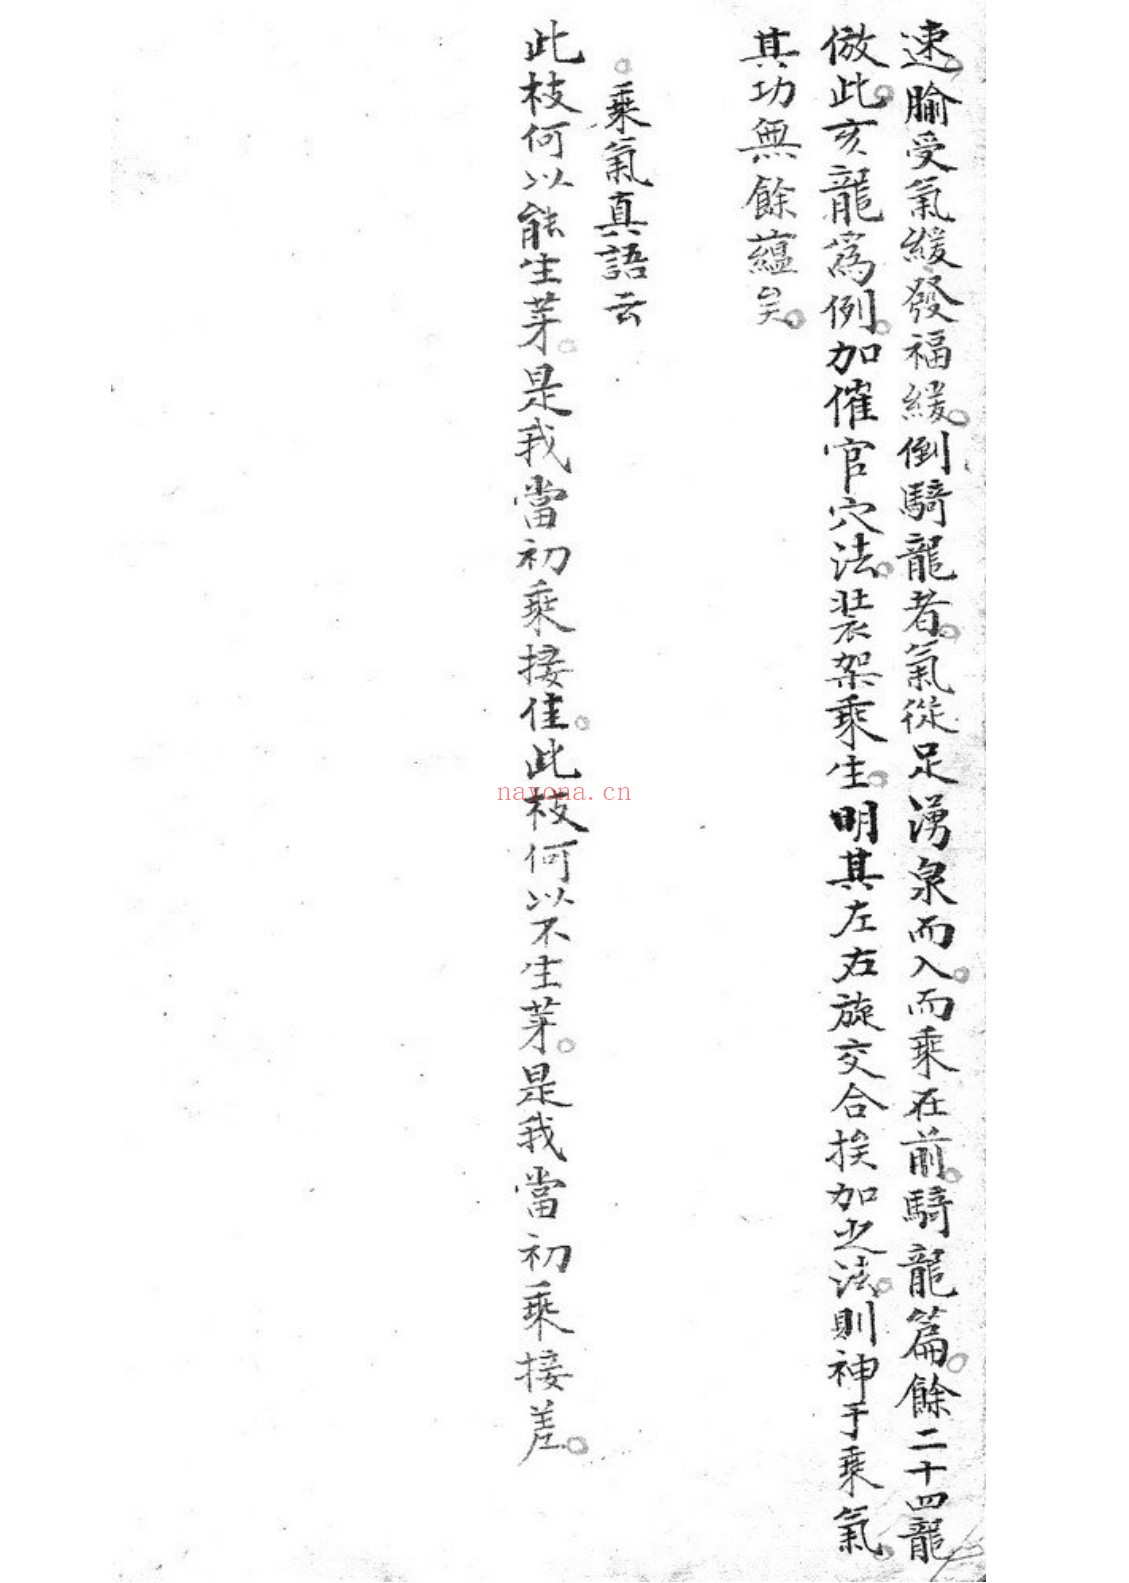 速。腧受氣緩發福緩。倒騎龍者。氣從足湧泉而入。而乘在前。騎龍篇。餘二十四龍
倣此。亥龍爲例。加催官穴法。裝架乘生。明其左右旋交合挨加之法。則神于乘氣。
其功無餘蘊矣。
。乘氣真語云
此枝何以能生芽。是我當初乘接佳。此枝何以不生芽。是我當初乘接差。
nayona.cn